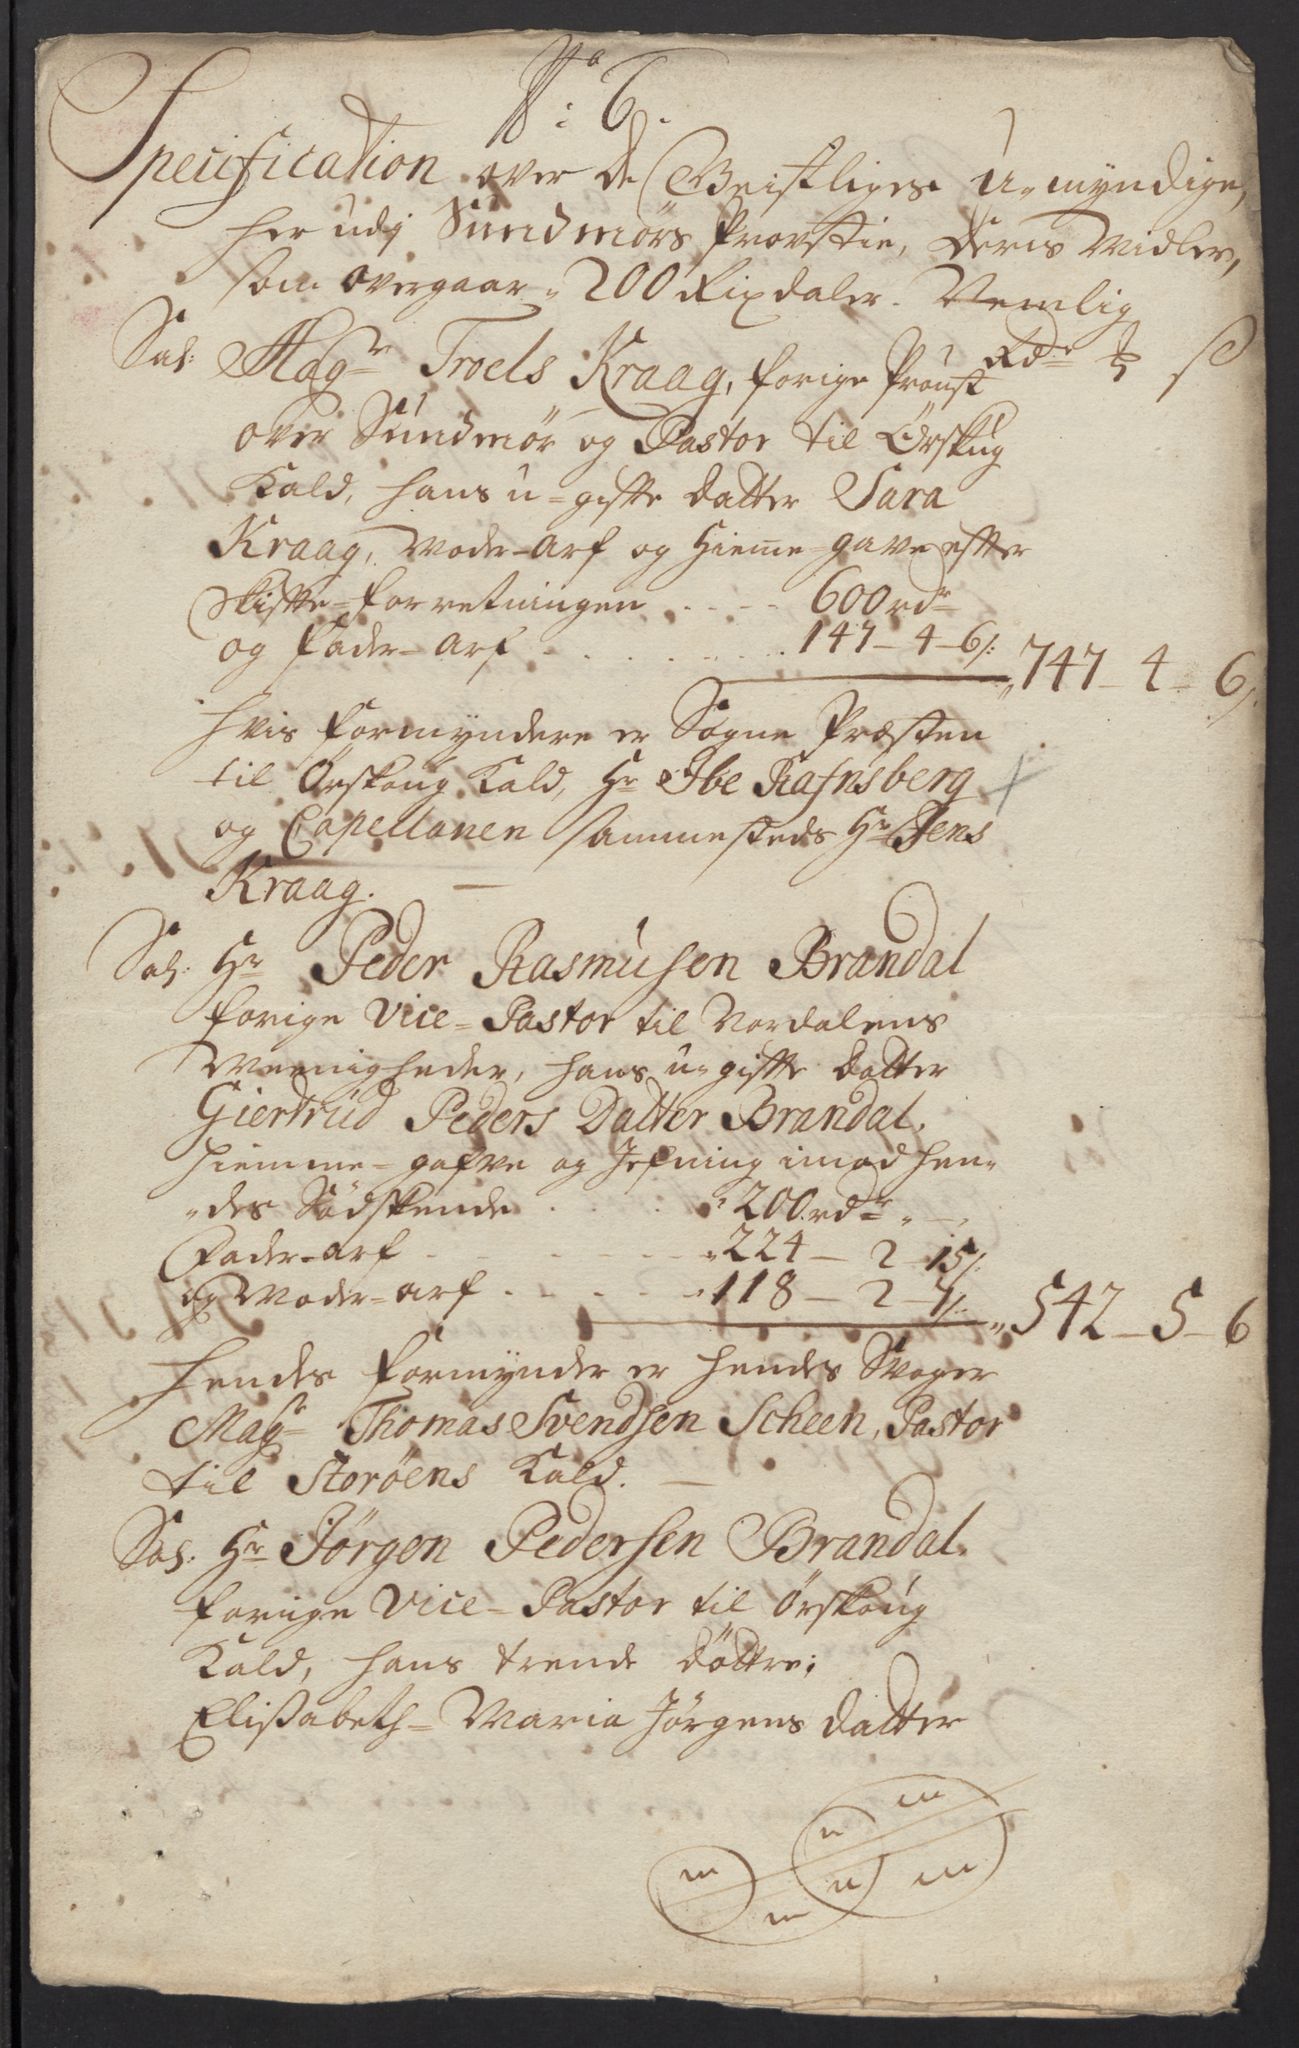 No: 6.
Specification over de Geistliges U-myndige,
her udj Sundmörs Provstie, deris Midler,
som overgaar 200 Rixdaler. Nemlig
Rdr ß
Sal: Magr Troels Kraag, forige Proust
over Sundmör og Pastor til Ørskug
Kald, hans u-gifte datter Sara
Kraag, Moder-Arf og Hieme-gave effter
Skiffte-forretningen . . . . 600 rdr
og fader-arf . . . . . . . 147-4-6/: 747-4-6/
hvis formyndere er Sogne Præsten
til Ørskoug Kald, Hr Ibe Rafnsberg
og Capellanen sammesteds Hr Jens
Kraag. —
Sal: Hr Peder Rasmusen Brandal
forige Vice-Pastor til Nordalens
Meenigheder, hans u-giffte datter
Giertrud Peders Datter Brandal,
Hiemme-gafve og Jefning imod hen-
-des Södskende . . . . 200 rdr „ —
Fader-arf - - - - - „224-2-15/:
og Moder-arf - - - - - -118-2-7/: „542-5-6
Hendes formynder er hendes Svoger
Magr Thomas Svendsen Scheen, Pastor
til Storöens Kald. —
Sal: Hr Jörgen Pedersen Brandal.
foriige Vice-Pastor til Ørskoug
Kald, hans trende döttre;
Elisabeth-Maria Jörgens datter